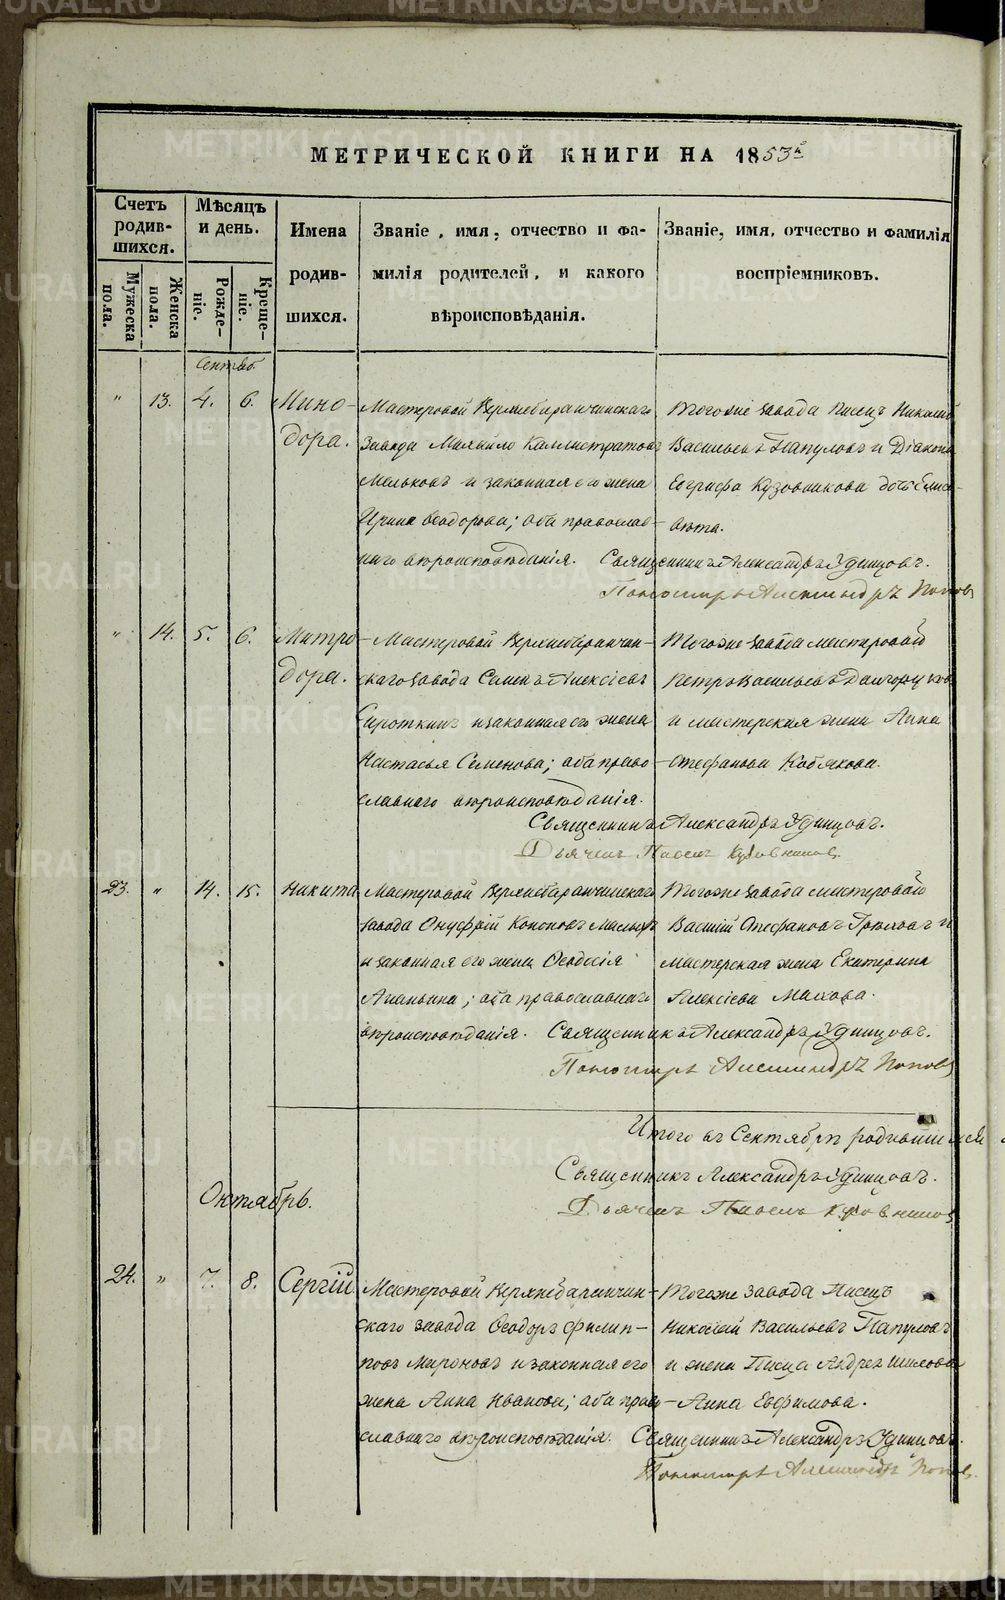 МЕТРИЧЕСКОЙ КНИГИ НА 1853й
Счетъ родив-шихся.
Мѣсяцъ и день.
Мужеска пола.
Женска пола.
Рожде-ніе.
Креще-ніе.
Имена родив-шихся.
Званіе, имя, отчество и фа-
милія родителей, и какого
вѣроисповѣданія.
Званіе, имя, отчество и фамилія
воспріемниковъ.
Сентяб.
" 13. 4. 6. Мино-
дора.
Мастеровой Верхнебаранчинскаго
завода Михайло Каллистратовъ
Мальковъ и законная его жена
Ирина Ѳеодорова; оба православ-
наго вѣроисповѣданія.
Тогоже завода Писецъ Николай
Васильевъ Папуловъ и Діакона
Евграфа Кузовникова дочь Елиса-
вета.
Священникъ Александръ Удинцовъ.
Пономарь Александръ Поповъ
" 14. 5. 6. Митро-
дора.
Мастеровой Верхнебаранчин-
скаго завода Семенъ Алексіевъ
Сироткинъ и законная его жена
Настасья Семенова; оба право-
славнаго вѣроисповѣданія.
Тогоже завода мастеровой
Петръ Васильевъ Долгоруковъ
и мастерская жена Анна
Стефанова Кобякова.
Священникъ Александръ Удинцовъ.
Дьячекъ Павелъ Кузовниковъ.
23. " 14. 15. Никита
Мастеровой Верхнебаранчинскаго
завода Онуфрій Кононовъ
и законная его жена Ѳеодосія
Ананьина; оба православнаго
вѣроисповѣданія.
Тогоже завода мастеровой
Василій Стефановъ и
мастерская жена Екатерина
Алексіева Махова.
Священникъ Александръ Удинцовъ.
Пономарь Александръ Поповъ
Итого въ Сентябрѣ родившихся
Священникъ Александръ Удинцовъ.
Дьячекъ Павелъ Кузовниковъ
Октябрь.
24. " 7. 8. Сергій
Мастеровой Верхнебаранчин-
скаго завода Ѳеодоръ Филип-
повъ Мироновъ и законная его
жена Анна Иванова; оба право-
славнаго вѣроисповѣданія.
Тогоже завода Писецъ
Николай Васильевъ Папуловъ
и жена Писца Андрея Шилова
Анна Евфимова.
Священникъ Александръ Удинцовъ.
Пономарь Александръ Поповъ.
METRIKI.GASO-URAL.RU